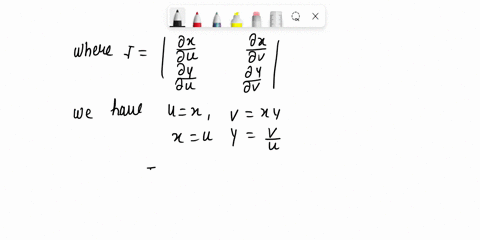 where J = | ∂x/∂u ∂x/∂v |
| ∂y/∂u ∂y/∂v |
we have u = x, v = xy
x = u y = v/u